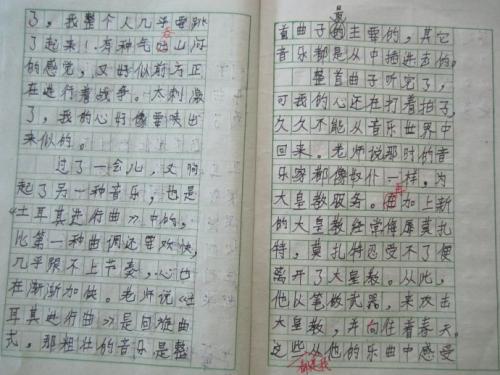 了，我整个人几乎要跳
了起来！有种气吞山河
的感觉，又好似前方正
在进行着战争。太刺激
了，我的心好像要蹦出
来似的。
过了一会儿，又响
起了另一种音乐，也是
《土耳其进行曲》中的，
比第一种曲调还要欢快，
几乎跟不上节奏，心也
在渐渐加快。老师说《土
耳其进行曲》是回旋曲
式，那粗壮的音乐是整
首曲子最的主要的，其它
音乐都是从中插进去的。
整首曲子听完了，
可我的心还在打着拍子，
久久不能从音乐世界中
回来。老师说那时的音
乐家都像奴仆一样，为
大皇教服务。再加上新
的大皇教经常侮辱莫扎
特，莫扎特忍受不了便
离开了大皇教。从此，
他以笔做武器，来攻击
大皇教，并向往着春天。
这些从他的乐曲中感受
都是我